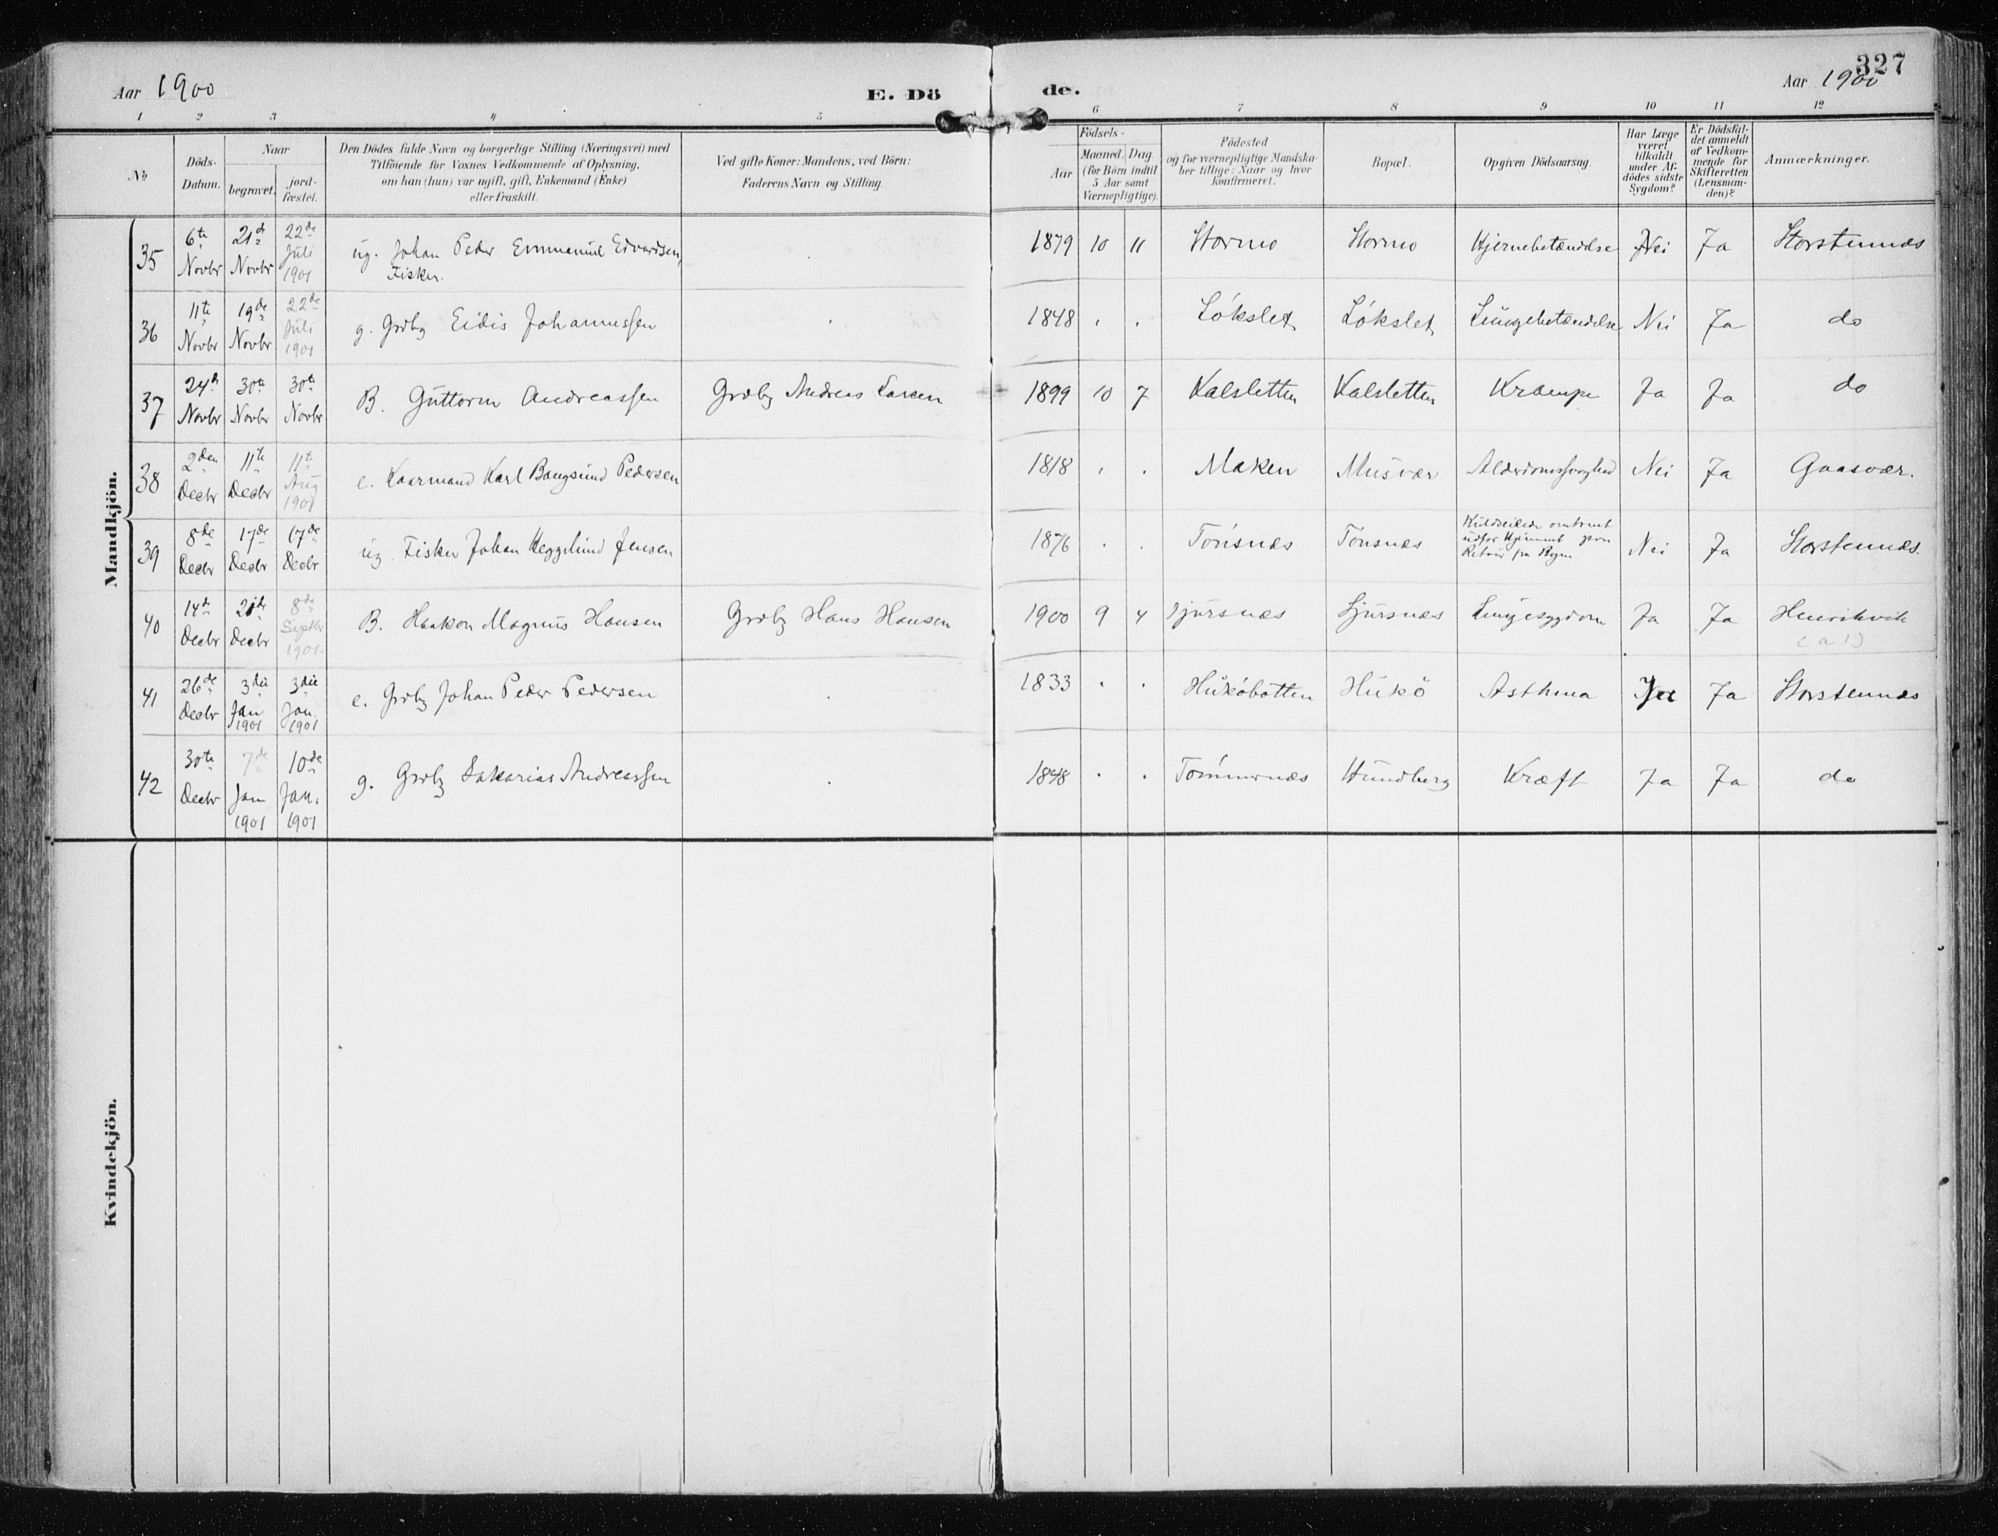 327
Aar 1900
E. Dö
de.
Aar 1900
1 2 3 4 5 6 7 8 9 10 11 12
No
Döds-
Datum.
Naar
begravet.
jord-
fæstet.
Den Dödes fulde Navn og borgerlige Stilling (Næringsvei) med
Tilföiende for Voxnes Vedkommende af Oplysning,
om han (hun) var ugift, gift, Enkemand (Enke)
eller fraskilt.
Ved gifte Koner: Mandens, ved Börn:
Faderens Navn og Stilling.
Födsels-
Aar
Maaned. Dag
(for Börn indtil
5 Aar samt
Værnepligtige).
Födested
og for værnepligtige Mandska-
ber tillige: Naar og hvor
konfirmeret.
Bopæl.
Opgiven Dödsaarsag.
Har Læge
været
tilkaldt
under Af-
dödes sidste
Sygdom?
Er Dödsfal-
det anmeldt
af Vedkom-
mende for
Skifteretten
(Lensman-
den)?
Anmærkninger.
Mandkjön.
35 6te Novbr 21de Novbr 22de Juli 1901 ug. Johan Peder Emmanuel Edvardsen, Fisker. 1879 10 11 Stormo Stormo Hjernebetændelse Nei Ja Storstennæs
36 11te Novbr 19de Novbr 22de Juli 1901 g. Grdbg Eidis Johannessen 1848 Lökslet Lökslet Lungebetændelse Nei Ja do
37 24de Novbr 30te Novbr 30te Novbr B. Guttorm Andreassen Grdbg Andreas Larsen 1899 10 7 Kalsletten Kalsletten Krampe Ja Ja do
38 2den Decbr 11te Decbr 11te Aug 1901 e. Kaarmand Karl Bangsund Pedersen 1818 Maken Musvær Alderdomssvaghed Nei Ja Gaasvær.
39 8de Decbr 17de Decbr 17de Decbr ug. Fisker Johan Heggelund Jensen 1876 Tönsnæs Tönsnæs Kuldseilede omtrent udfor Hjemmet paa Retour fra Byen Nei Ja Storstennæs.
40 14de Decbr 21de Decbr 8de Septbr 1901. B. Haakon Magnus Hansen Grdbg Hans Hansen 1900 9 4 Sjursnæs Sjursnæs Lungesygdom Ja Ja Henrikvik
41 26de Decbr 3die Jan 1901 3die Jan. 1901 e. Grdbg Johan Peder Pedersen 1833 Huköbotten Hukö Asthma Ja Storstennæs
42 30te Decbr 7de Jan 1901 10de Jan. 1901 g. Grdbg Sakarias Andreassen 1848 Tömmernæs Hundberg Kræft Ja Ja do
Kvindekjön.